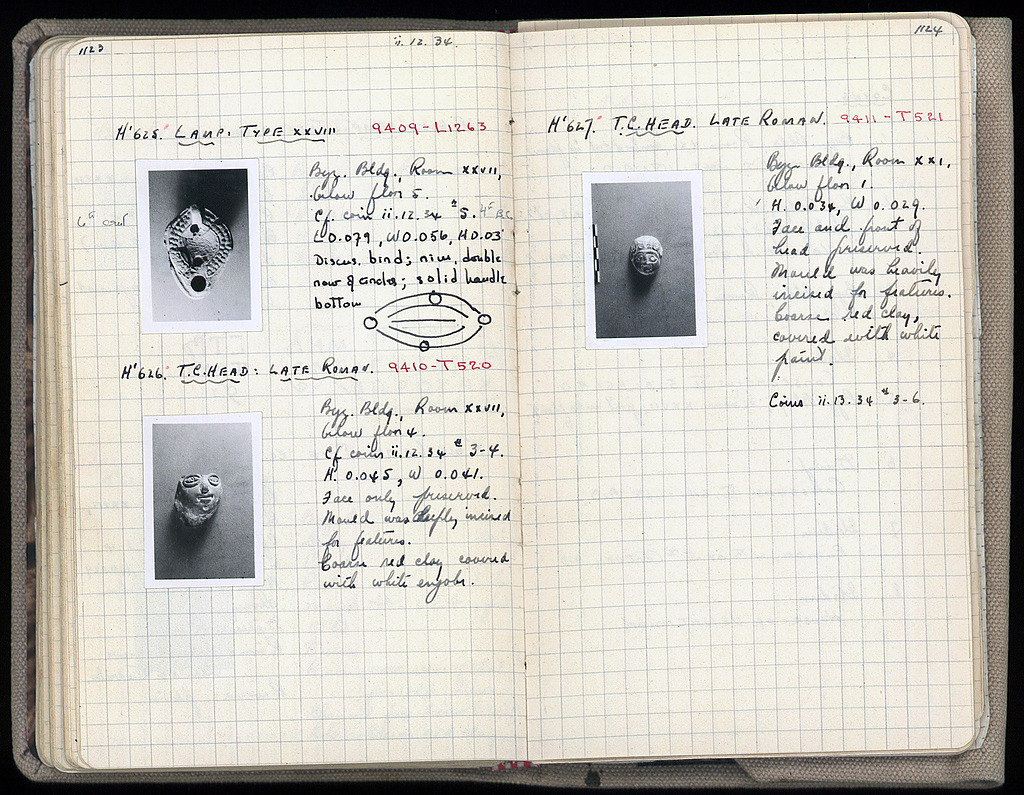 1123
ii.12.34.
H'625. LAMP: TYPE XXVIII 9409-L1263
Byz. Bldg., Room XXVII,
below floor 5.
Cf. coin ii.12.34 #5. 4th B.C.
6th cent
L 0.079, W 0.056, H 0.03
Discus, bird; rim, double
row of circles; solid handle
bottom
H'626. T.C. HEAD: LATE ROMAN. 9410-T520
Byz. Bldg., Room XXVII,
below floor 4.
Cf coins ii.12.34 # 3-4.
H. 0.045, W 0.041.
Face only preserved.
Mould was deeply incised
for features.
Coarse red clay covered
with white engobe.
1124
H'627. T.C. HEAD. LATE ROMAN. 9411-T521
Byz. Bldg., Room XXI,
below floor 1.
H. 0.034, W 0.029.
Face and front of
head preserved.
Mould was heavily
incised for features.
Coarse red clay,
covered with white
paint.
Coins ii.13.34 # 3-6.